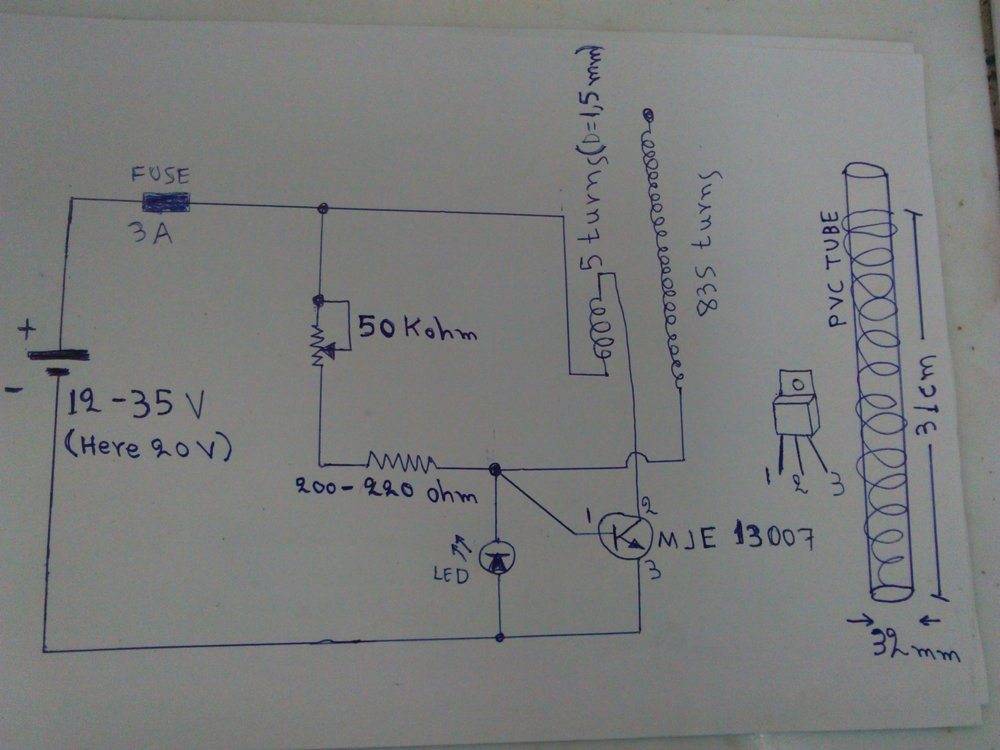 FUSE
3A
+
-
12-35 V
(Here 20V)
50 Kohm
200-220 ohm
LED
5 turns (D=1,5 mm)
838 turns
1
2
3
MJE 13007
1 2 3
PVC TUBE
31cm
32 mm